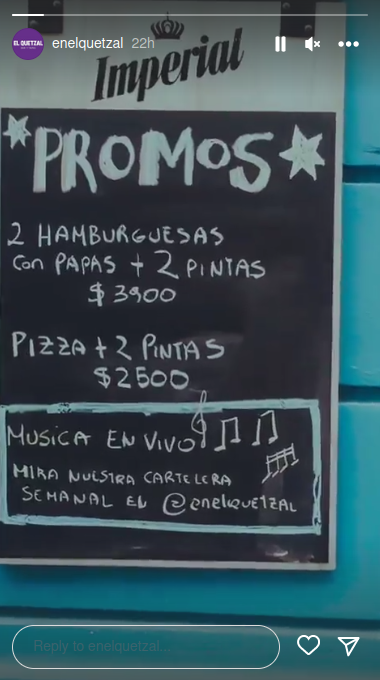 EL QUETZAL
enelquetzal 22h
Imperial
PROMOS
2 HAMBURGUESAS
Con PAPAS + 2 PINTAS
$ 3900
PIZZA + 2 PINTAS
$ 2500
MUSICA EN VIVO
MIRA NUESTRA CARTELERA
SEMANAL EN @enelQUETZAL
Reply to enelquetzal...